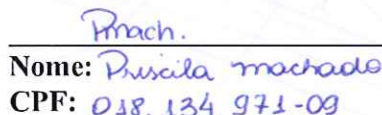 Pmach.
Nome: Priscila machado
CPF: 018.134 971-09